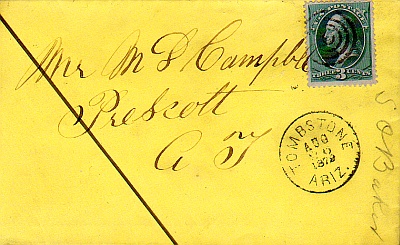 U.S. POSTAGE
THREE 3 CENTS
Mr M D Campbell
Prescott
A T
TOMBSTONE
AUG
1879
ARIZ.